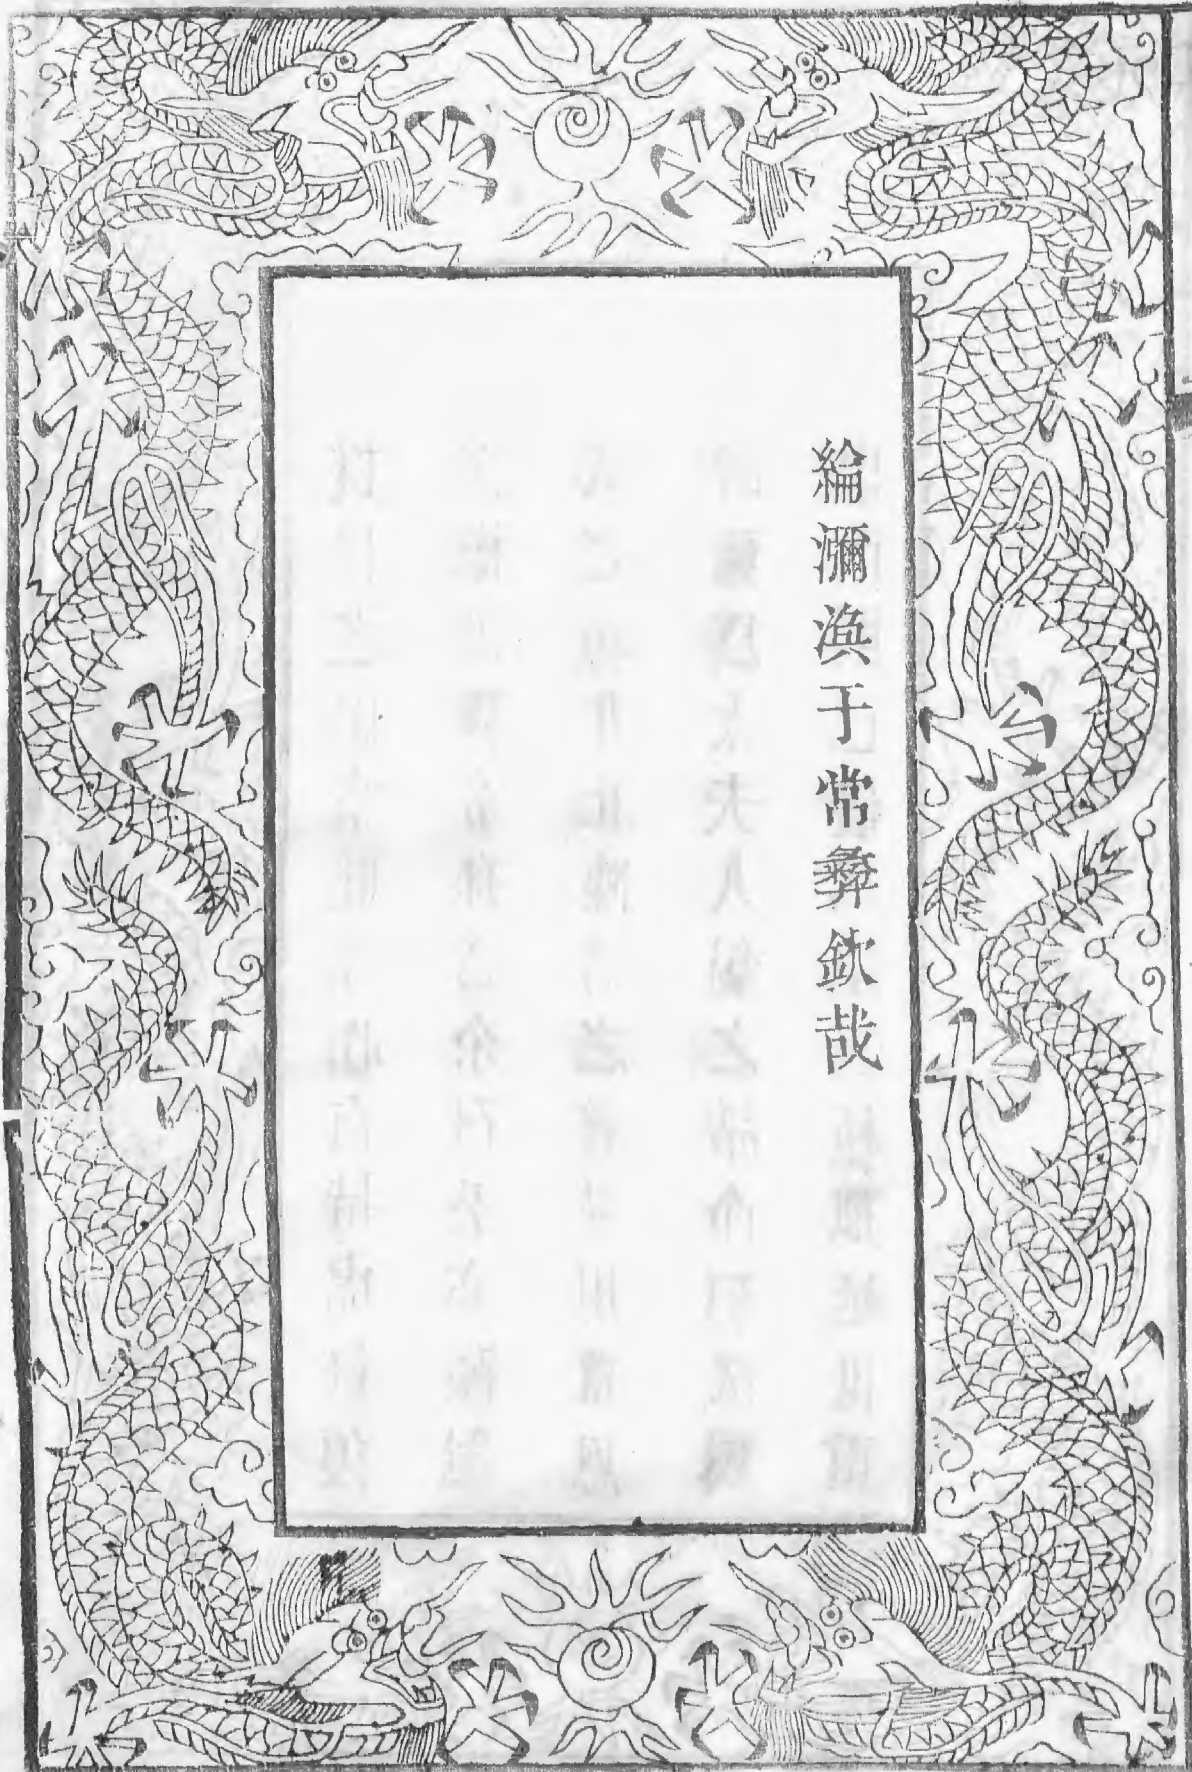 綸瀰渙于常彝欽哉